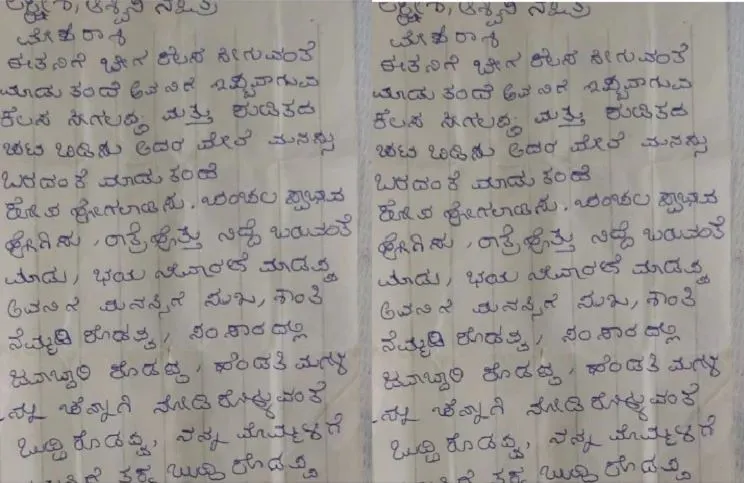 ಲಕ್ಷ್ಮೀಶ, ಅಶ್ವಿನಿ ನಕ್ಷತ್ರ
ಮೇಶ ರಾಶಿ
ಈತನಿಗೆ ಬೇಗ ಕೆಲಸ ಸೀಗುವಂತೆ
ಮಾಡು ತಂದೆ ಅವನಿಗೆ ಇಷ್ಟವಾಗುವ
ಕೆಲಸ ಸಿಗಲಪ್ಪ ಮತ್ತು ಕುಡಿತದ
ಚಟ ಬಿಡಿಸು ಅದರ ಮೇಲೆ ಮನಸ್ಸು
ಬರದಂತೆ ಮಾಡು ತಂದೆ
ಕೋಪ ಹೋಗಲಾಡಿಸು. ಚಂಚಲ ಸ್ವಾಭಾವ
ಹೋಗಿಸು, ರಾತ್ರೆಹೊತ್ತು ನಿದ್ದೆ ಬರುವಂತೆ
ಮಾಡು, ಭಯ ನಿವಾರಣೆ ಮಾಡಪ್ಪ
ಅವನಿಗೆ ಮನಸ್ಸಿಗೆ ಸುಖ, ಶಾಂತಿ
ನೆಮ್ಮದಿ ಕೊಡಪ್ಪ, ಸಂಸಾರದಲ್ಲಿ
ಜವಾಬ್ದಾರಿ ಕೊಡಪ್ಪ, ಹೆಂಡತಿ ಮಗಳ
ನ್ನು ಚೆನ್ನಾಗಿ ನೋಡಿಕೊಳ್ಳುವಂತೆ
ಬುದ್ದಿ ಕೊಡಪ್ಪ, ನನ್ನ ಮೊಮ್ಮಳಿಗೆ
ತಕ್ಕ ಬುದ್ದಿ ಕೊಡಪ್ಪ
ಲಕ್ಷ್ಮೀಶ, ಅಶ್ವಿನಿ ನಕ್ಷತ್ರ
ಮೇಶ ರಾಶಿ
ಈತನಿಗೆ ಬೇಗ ಕೆಲಸ ಸೀಗುವಂತೆ
ಮಾಡು ತಂದೆ ಅವನಿಗೆ ಇಷ್ಟವಾಗುವ
ಕೆಲಸ ಸಿಗಲಪ್ಪ ಮತ್ತು ಕುಡಿತದ
ಚಟ ಬಿಡಿಸು ಅದರ ಮೇಲೆ ಮನಸ್ಸು
ಬರದಂತೆ ಮಾಡು ತಂದೆ
ಕೋಪ ಹೋಗಲಾಡಿಸು. ಚಂಚಲ ಸ್ವಾಭಾವ
ಹೋಗಿಸು, ರಾತ್ರೆಹೊತ್ತು ನಿದ್ದೆ ಬರುವಂತೆ
ಮಾಡು, ಭಯ ನಿವಾರಣೆ ಮಾಡಪ್ಪ
ಅವನಿಗೆ ಮನಸ್ಸಿಗೆ ಸುಖ, ಶಾಂತಿ
ನೆಮ್ಮದಿ ಕೊಡಪ್ಪ, ಸಂಸಾರದಲ್ಲಿ
ಜವಾಬ್ದಾರಿ ಕೊಡಪ್ಪ, ಹೆಂಡತಿ ಮಗಳ
ನ್ನು ಚೆನ್ನಾಗಿ ನೋಡಿಕೊಳ್ಳುವಂತೆ
ಬುದ್ದಿ ಕೊಡಪ್ಪ, ನನ್ನ ಮೊಮ್ಮಳಿಗೆ
ತಕ್ಕ ಬುದ್ದಿ ಕೊಡಪ್ಪ